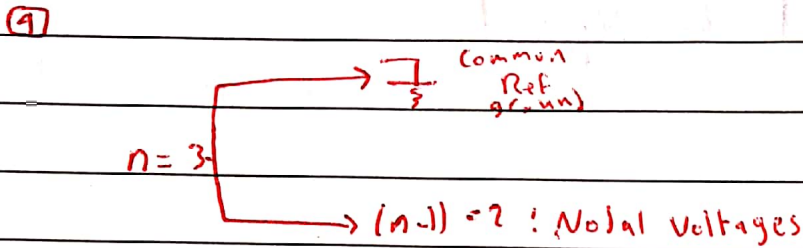 4
Common
Ref
ground
n = 3
(n-1) = 2 : Nodal Voltages